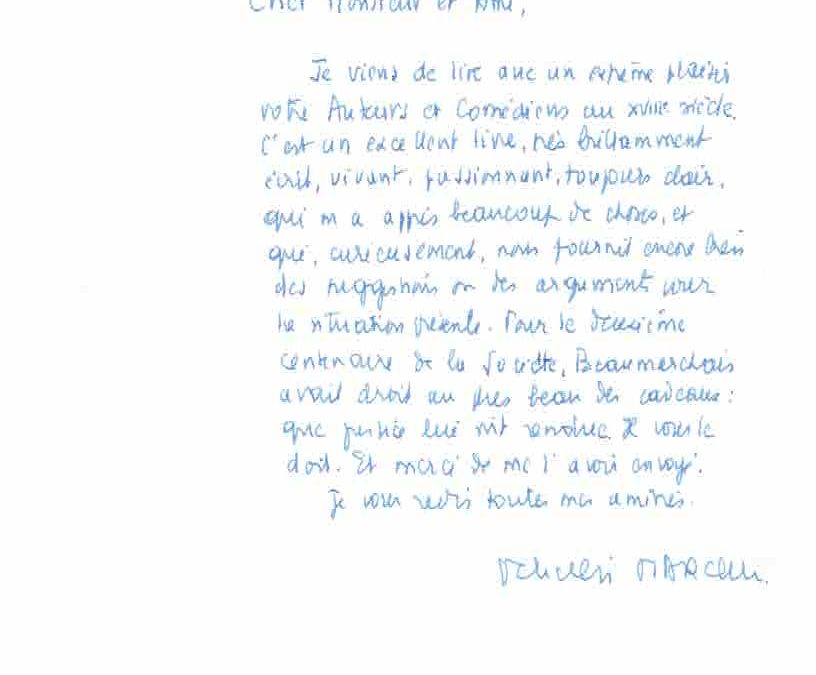 Cher Monsieur et Ami,
Je viens de lire avec un extrême plaisir
votre Auteurs et Comédiens au XVIIIe siècle.
C'est un excellent livre, très brillamment
écrit, vivant, passionnant, toujours clair,
qui m'a appris beaucoup de choses, et
qui, curieusement, nous fournit encore bien
des suggestions ou des arguments pour
la situation présente. Pour le deuxième
centenaire de la Société, Beaumarchais
avait droit au plus beau des cadeaux :
que justice lui soit rendue. Il vous le
doit. Et merci de me l'avoir envoyé.
Je vous redis toutes mes amitiés.